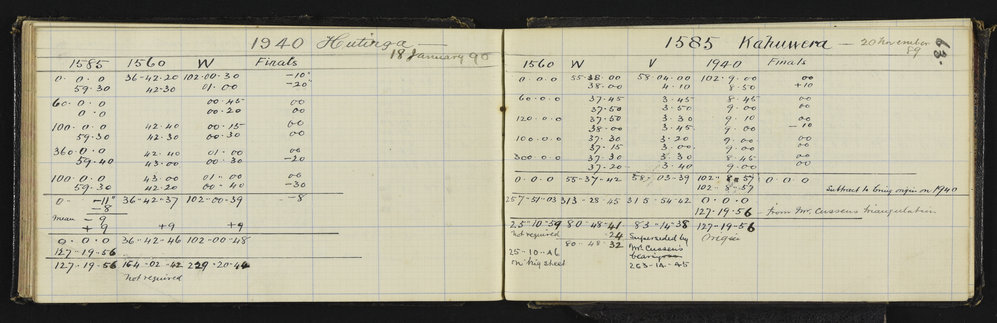 1940 Hutinga
18 January 90
1585 1560 W Finals
0. 0. 0 36-42-20 102-00-30 -10"
59-30 42-30 01-00 -20"
60. 0. 0 00-45 00
0. 0 00-20 00
100. 0. 0 42-40 00-15 00
59-30 42-30 00-30 00
360. 0. 0 42-40 01-00 00
59-40 43-00 00-30 -20
100. 0. 0 43-00 01-00 00
59-30 42-20 00-40 -30
0. -11" 36-42-37 102-00-39 -8
-8
mean - 9
+ 9 +9 +9
0. 0. 0 36-42-46 102-00-48
127-19-56
127-19-56 164-02-42 229-20-44
not required
63.
1585 Kahuwera - 20 November 89
1560 W V 1940 Finals
0. 0. 0 55-38-00 58-04-00 102-9-00 00
38-00 4-10 8-50 +10
60. 0. 0 37-45 3-45 8-45 00
37-50 3-50 9-00 00
120. 0. 0 37-50 3-30 9-10 00
38-00 3-45 9-00 -10
100. 0. 0 37-30 3-20 9-00 00
37-15 3-00 9-00 00
300. 0. 0 37-30 3-30 8-45 00
37-20 3-40 9-00 00
0. 0. 0 55-37-42 58-03-39 102-8-57 0. 0. 0
102-8-57 Subtract to bring origin on 1940
257-51-03 313-28-45 315-54-42 0. 0. 0
127-19-56 - from Mr. Cussens triangulation
25-10-59 80-48-41 83-14-38 127-19-56
not required 24 Superseded by Origin
80-48-32 Mr. Cussens
25-10-46 bearing
on big sheet 263-14-45